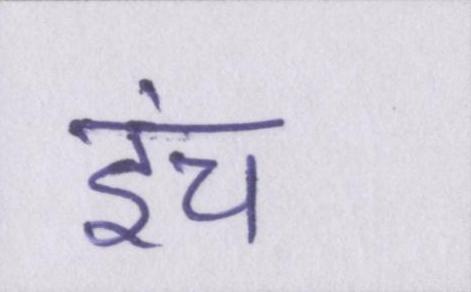 इंच